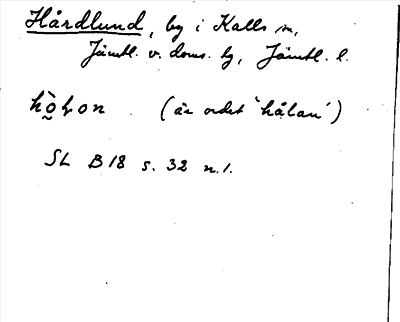 Hårdlund, by i Kalls sn,
Jämtl. v. doms. hg, Jämtl. l.
(är ordet 'hålan')
SL B 18 s. 32 n. 1.